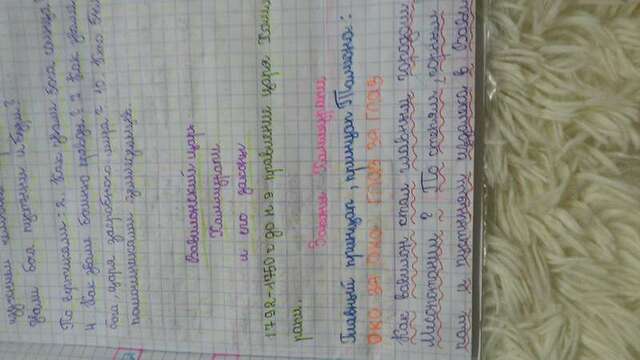 изучением
звали бога пустыни и бури?
По вертикали: 2. Как звали бога солнца?
4. Как звали богиню правды? 7. Как звали
бога, царя загробного мира? 10. Кто был
помощниками земледельцев.
Вавилонский царь
Хаммурапи
и его законы
1792-1750 г до н.э правление царя Хамм
рапи.
Законы Хаммурапи
Главный принцип, принцип Талиона:
ОКО ЗА ОКО ГЛАЗ ЗА ГЛАЗ
Как вавилон стал главным городом
Месопотамии? По степям, горным
пам и пустыням издалека в Вави